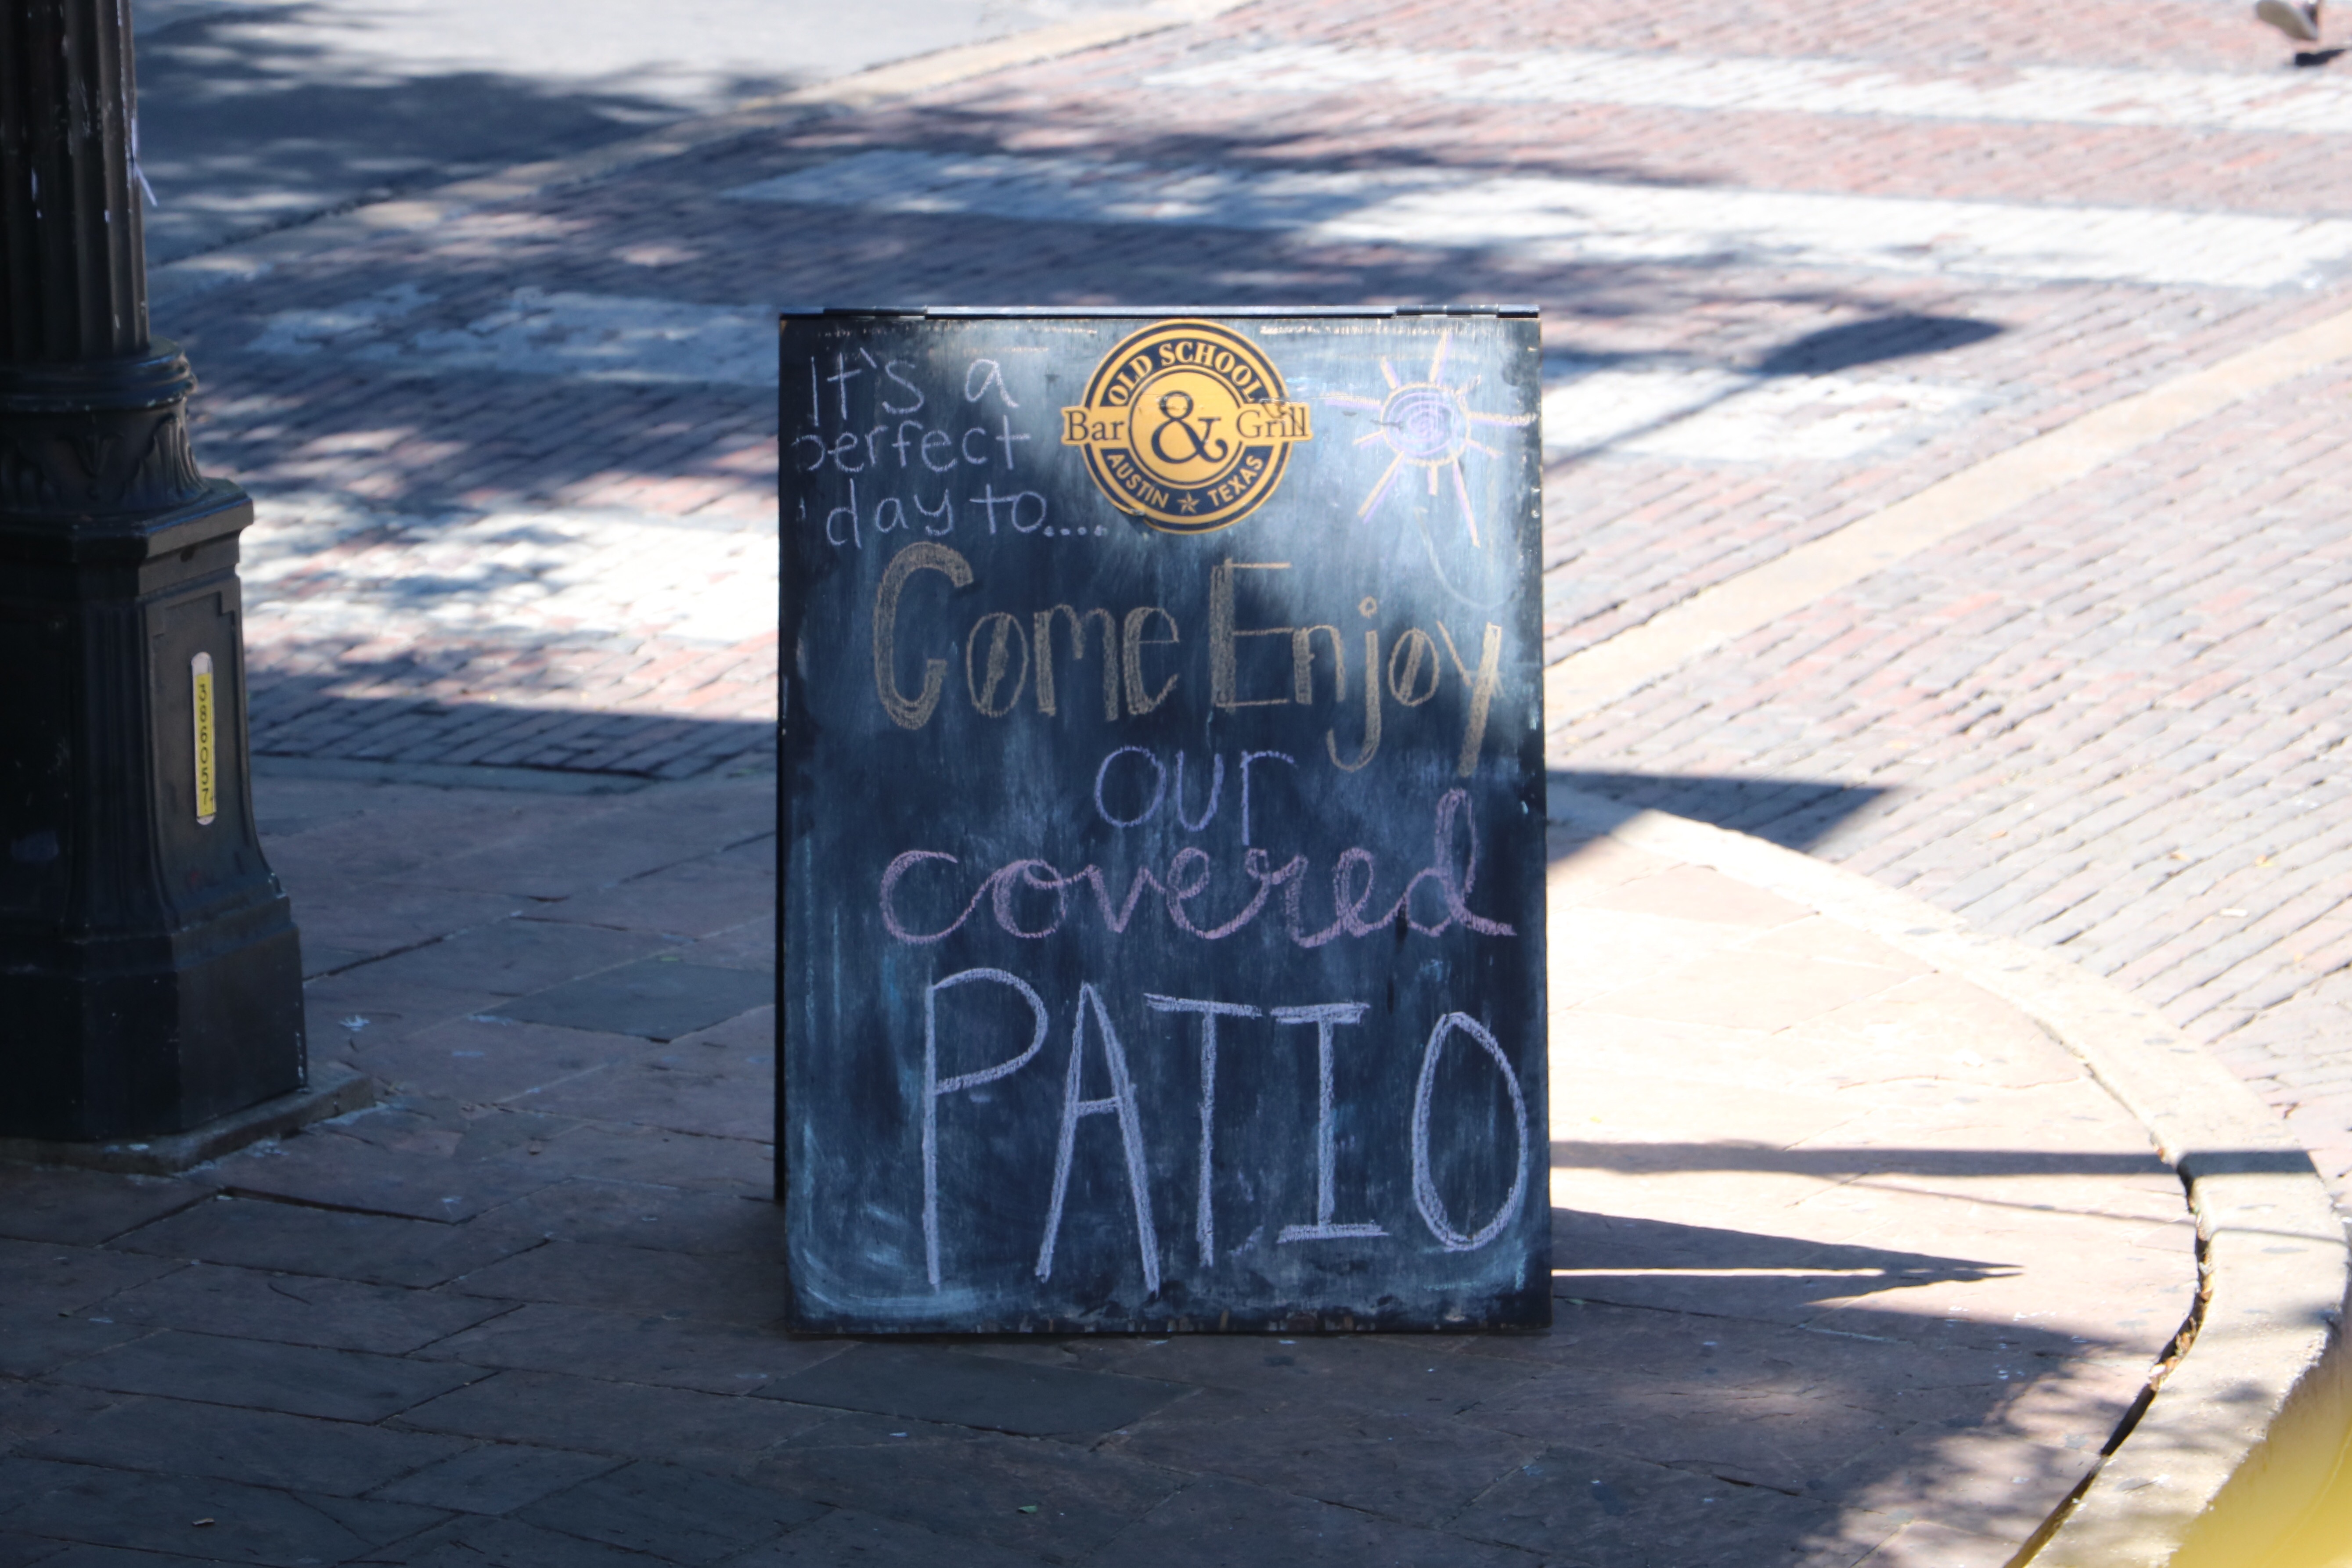 It's a
perfect
day to....
OLD SCHOOL
Bar & Grill
AUSTIN TEXAS
Come Enjoy
our
covered
PATIO
386057